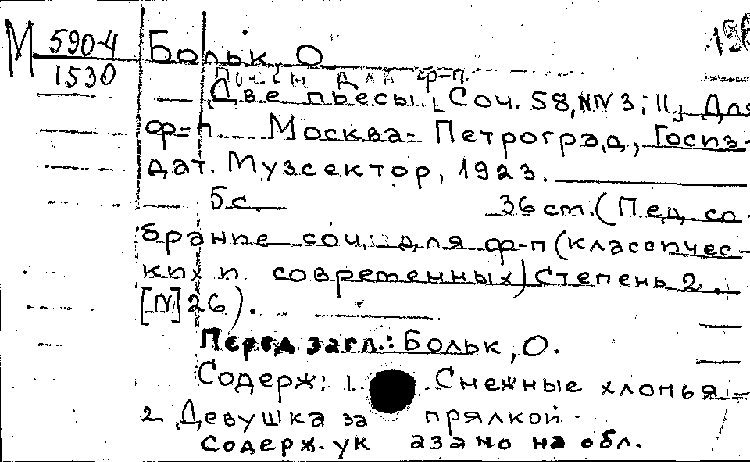 М 590-4 Больк, О
1530
Пьесы для ф-п.
Две пьесы [Соч. 58, NN 3; 11] Для
ф-п. Москва-Петроград, Госиз-
дат. Музсектор, 1923.
5 с. 36 cm. (Пед. со-
брание соч. для ф-п (классичес-
ких и современных) Степень 2.
[N] 26).
Перед загл.: Больк, О.
Содерж: 1. Снежные хлопья.—
2. Девушка за прялкой.
Содерж. указано на обл.